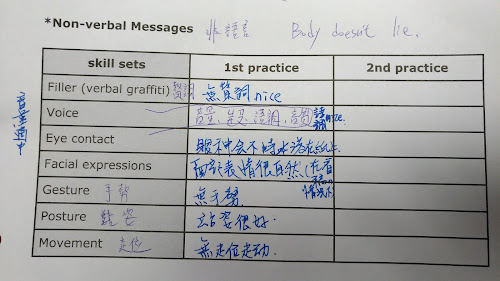 *Non-verbal Messages 非語言 Body doesn't lie.
skill sets 1st practice 2nd practice
Filler (verbal graffiti) 贅詞 無贅詞 nice
Voice 音量、 語調、音質 語調 nice.
Eye contact 眼神会不時水落在
Facial expressions 面部表情很自然 (在 情況下)
Gesture 手勢 無手勢
Posture 站姿 站姿很好.
Movement 走位 無走位走动.